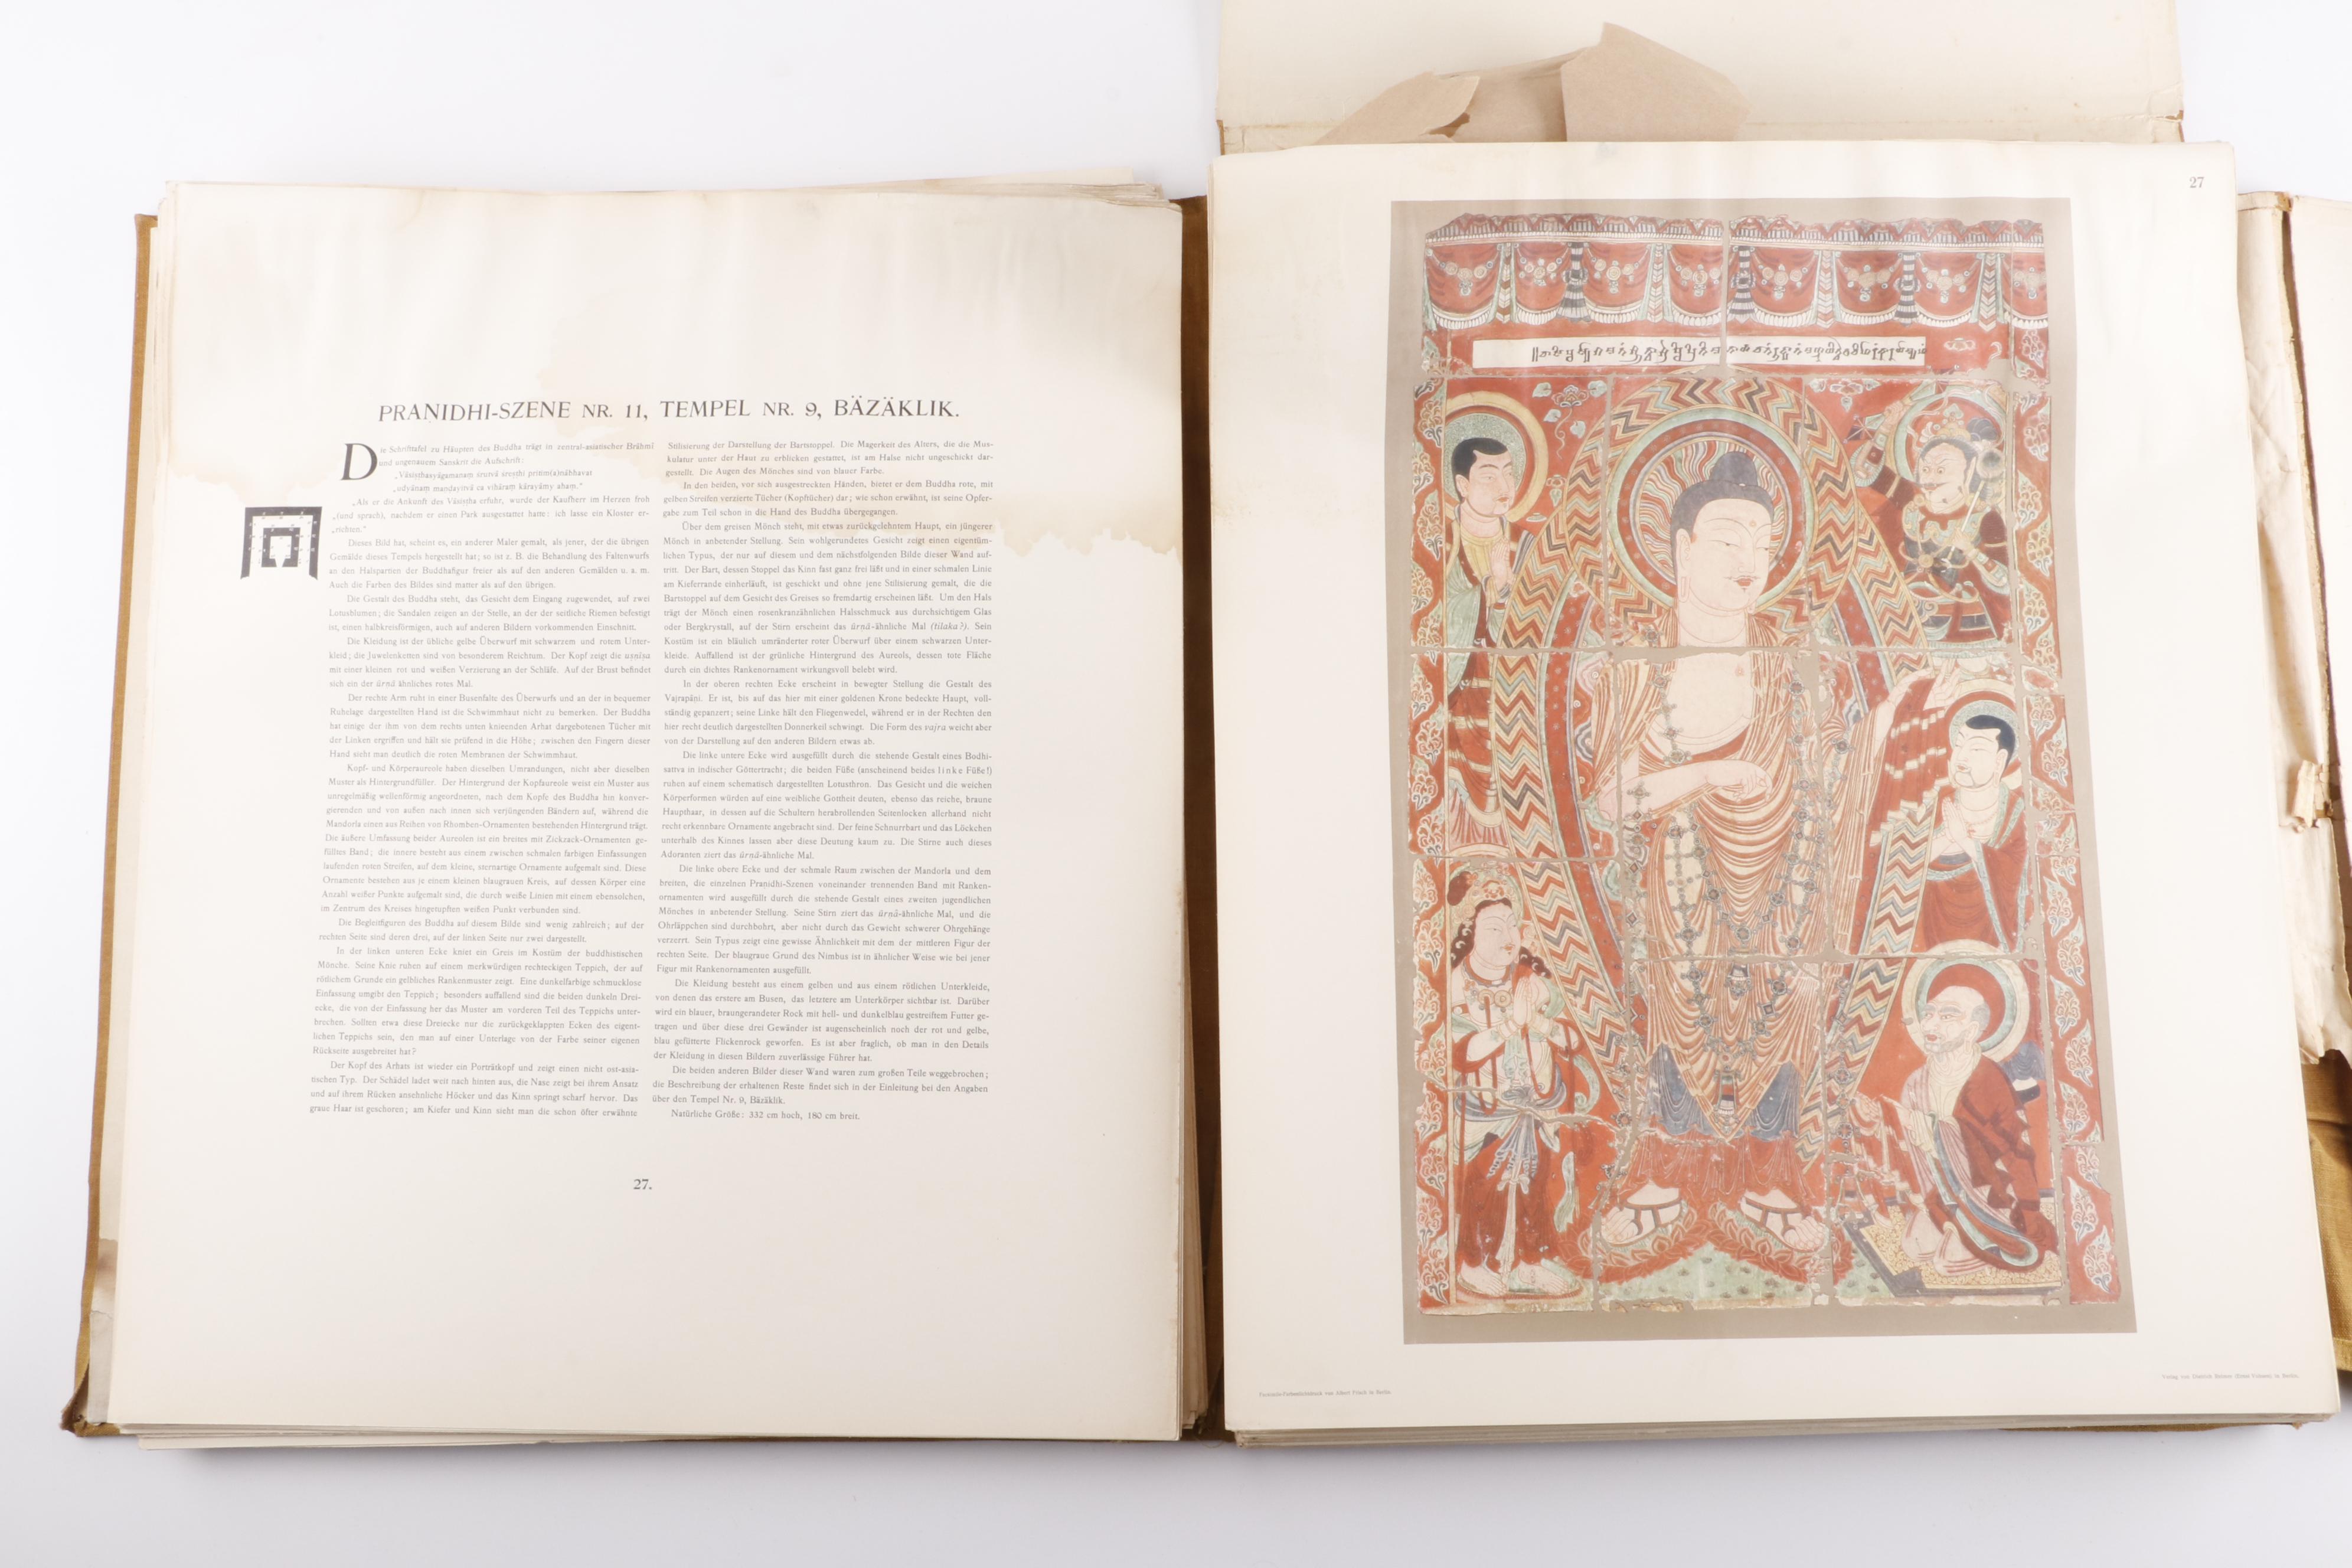 PRAṆIDHI-SZENE NR. 11, TEMPEL NR. 9, BÄZÄKLIK.
Die Schrifttafel zu Häupten des Buddha trägt in zentral-asiatischer Brāhmī
und ungenauem Sanskrit die Aufschrift:
„Vāsiṣṭhasyāgamanaṃ śrutvā śreṣṭhi prītim(a)nābhavat
„udyānaṃ maṇḍayitvā ca vihāraṃ kārayāmy ahaṃ.“
„Als er die Ankunft des Vāsiṣṭha erfuhr, wurde der Kaufherr im Herzen froh
„(und sprach), nachdem er einen Park ausgestattet hatte: ich lasse ein Kloster er-
„richten.“
Dieses Bild hat, scheint es, ein anderer Maler gemalt, als jener, der die übrigen
Gemälde dieses Tempels hergestellt hat; so ist z. B. die Behandlung des Faltenwurfs
an den Halspartien der Buddhafigur freier als auf den anderen Gemälden u. a. m.
Auch die Farben des Bildes sind matter als auf den übrigen.
Die Gestalt des Buddha steht, das Gesicht dem Eingang zugewendet, auf zwei
Lotusblumen; die Sandalen zeigen an der Stelle, an der der seitliche Riemen befestigt
ist, einen halbkreisförmigen, auch auf anderen Bildern vorkommenden Einschnitt.
Die Kleidung ist der übliche gelbe Überwurf mit schwarzem und rotem Unter-
kleid; die Juwelenketten sind von besonderem Reichtum. Der Kopf zeigt die uṣṇīṣa
mit einer kleinen rot und weißen Verzierung an der Schläfe. Auf der Brust befindet
sich ein der ūrṇā ähnliches rotes Mal.
Der rechte Arm ruht in einer Busenfalte des Überwurfs und an der in bequemer
Ruhelage dargestellten Hand ist die Schwimmhaut nicht zu bemerken. Der Buddha
hat einige der ihm von dem rechts unten knieenden Arhat dargebotenen Tücher mit
der Linken ergriffen und hält sie prüfend in die Höhe; zwischen den Fingern dieser
Hand sieht man deutlich die roten Membranen der Schwimmhaut.
Kopf- und Körperaureole haben dieselben Umrandungen, nicht aber dieselben
Muster als Hintergrundfüller. Der Hintergrund der Kopfaureole weist ein Muster aus
unregelmäßig wellenförmig angeordneten, nach dem Kopfe des Buddha hin konver-
gierenden und von außen nach innen sich verjüngenden Bändern auf, während die
Mandorla einen aus Reihen von Rhomben-Ornamenten bestehenden Hintergrund trägt.
Die äußere Umfassung beider Aureolen ist ein breites mit Zickzack-Ornamenten ge-
fülltes Band; die innere besteht aus einem zwischen schmalen farbigen Einfassungen
laufenden roten Streifen, auf dem kleine, sternartige Ornamente aufgemalt sind. Diese
Ornamente bestehen aus je einem kleinen blaugrauen Kreis, auf dessen Körper eine
Anzahl weißer Punkte aufgemalt sind, die durch weiße Linien mit einem ebensolchen,
im Zentrum des Kreises hingetupften weißen Punkt verbunden sind.
Die Begleitfiguren des Buddha auf diesem Bilde sind wenig zahlreich; auf der
rechten Seite sind deren drei, auf der linken Seite nur zwei dargestellt.
In der linken unteren Ecke kniet ein Greis im Kostüm der buddhistischen
Mönche. Seine Knie ruhen auf einem merkwürdigen rechteckigen Teppich, der auf
rötlichem Grunde ein gelbliches Rankenmuster zeigt. Eine dunkelfarbige schmucklose
Einfassung umgibt den Teppich; besonders auffallend sind die beiden dunkeln Drei-
ecke, die von der Einfassung her das Muster am vorderen Teil des Teppichs unter-
brechen. Sollten etwa diese Dreiecke nur die zurückgeklappten Ecken des eigent-
lichen Teppichs sein, den man auf einer Unterlage von der Farbe seiner eigenen
Rückseite ausgebreitet hat?
Der Kopf des Arhats ist wieder ein Porträtkopf und zeigt einen nicht ost-asia-
tischen Typ. Der Schädel ladet weit nach hinten aus, die Nase zeigt bei ihrem Ansatz
und auf ihrem Rücken ansehnliche Höcker und das Kinn springt scharf hervor. Das
graue Haar ist geschoren; am Kiefer und Kinn sieht man die schon öfter erwähnte
Stilisierung der Darstellung der Bartstoppel. Die Magerkeit des Alters, die die Mus-
kulatur unter der Haut zu erblicken gestattet, ist am Halse nicht ungeschickt dar-
gestellt. Die Augen des Mönches sind von blauer Farbe.
In den beiden, vor sich ausgestreckten Händen, bietet er dem Buddha rote, mit
gelben Streifen verzierte Tücher (Kopftücher) dar; wie schon erwähnt, ist seine Opfer-
gabe zum Teil schon in die Hand des Buddha übergegangen.
Über dem greisen Mönch steht, mit etwas zurückgelehntem Haupt, ein jüngerer
Mönch in anbetender Stellung. Sein wohlgerundetes Gesicht zeigt einen eigentüm-
lichen Typus, der nur auf diesem und dem nächstfolgenden Bilde dieser Wand auf-
tritt. Der Bart, dessen Stoppel das Kinn fast ganz frei läßt und in einer schmalen Linie
am Kieferrande einherläuft, ist geschickt und ohne jene Stilisierung gemalt, die die
Bartstoppel auf dem Gesicht des Greises so fremdartig erscheinen läßt. Um den Hals
trägt der Mönch einen rosenkranzähnlichen Halsschmuck aus durchsichtigem Glas
oder Bergkrystall, auf der Stirn erscheint das ūrṇā-ähnliche Mal (tilaka?). Sein
Kostüm ist ein bläulich umränderter roter Überwurf über einem schwarzen Unter-
kleide. Auffallend ist der grünliche Hintergrund des Aureols, dessen tote Fläche
durch ein dichtes Rankenornament wirkungsvoll belebt wird.
In der oberen rechten Ecke erscheint in bewegter Stellung die Gestalt des
Vajrapāni. Er ist, bis auf das hier mit einer goldenen Krone bedeckte Haupt, voll-
ständig gepanzert; seine Linke hält den Fliegenwedel, während er in der Rechten den
hier recht deutlich dargestellten Donnerkeil schwingt. Die Form des vajra weicht aber
von der Darstellung auf den anderen Bildern etwas ab.
Die linke untere Ecke wird ausgefüllt durch die stehende Gestalt eines Bodhi-
satva in indischer Göttertracht; die beiden Füße (anscheinend beides linke Füße!)
ruhen auf einem schematisch dargestellten Lotusthron. Das Gesicht und die weichen
Körperformen würden auf eine weibliche Gottheit deuten, ebenso das reiche, braune
Haupthaar, in dessen auf die Schultern herabrollenden Seitenlocken allerhand nicht
recht erkennbare Ornamente angebracht sind. Der feine Schnurrbart und das Löckchen
unterhalb des Kinnes lassen aber diese Deutung kaum zu. Die Stirne auch dieses
Adoranten ziert das ūrṇā-ähnliche Mal.
Die linke obere Ecke und der schmale Raum zwischen der Mandorla und dem
breiten, die einzelnen Praṇidhi-Szenen voneinander trennenden Band mit Ranken-
ornamenten wird ausgefüllt durch die stehende Gestalt eines zweiten jugendlichen
Mönches in anbetender Stellung. Seine Stirn ziert das ūrṇā-ähnliche Mal, und die
Ohrläppchen sind durchbohrt, aber nicht durch das Gewicht schwerer Ohrgehänge
verzerrt. Sein Typus zeigt eine gewisse Ähnlichkeit mit dem der mittleren Figur der
rechten Seite. Der blaugraue Grund des Nimbus ist in ähnlicher Weise wie bei jener
Figur mit Rankenornamenten ausgefüllt.
Die Kleidung besteht aus einem gelben und aus einem rötlichen Unterkleide,
von denen das erstere am Busen, das letztere am Unterkörper sichtbar ist. Darüber
wird ein blauer, braungerandeter Rock mit hell- und dunkelblau gestreiftem Futter ge-
tragen und über diese drei Gewänder ist augenscheinlich noch der rot und gelbe,
blau gefütterte Flickenrock geworfen. Es ist aber fraglich, ob man in den Details
der Kleidung in diesen Bildern zuverlässige Führer hat.
Die beiden anderen Bilder dieser Wand waren zum großen Teile weggebrochen;
die Beschreibung der erhaltenen Reste findet sich in der Einleitung bei den Angaben
über den Tempel Nr. 9, Bäzäklik.
Natürliche Größe: 332 cm hoch, 180 cm breit.
27.
27
von Albert Frisch in Berlin.
Verlag von Dietrich Reimer (Ernst Vohsen), in Berlin.